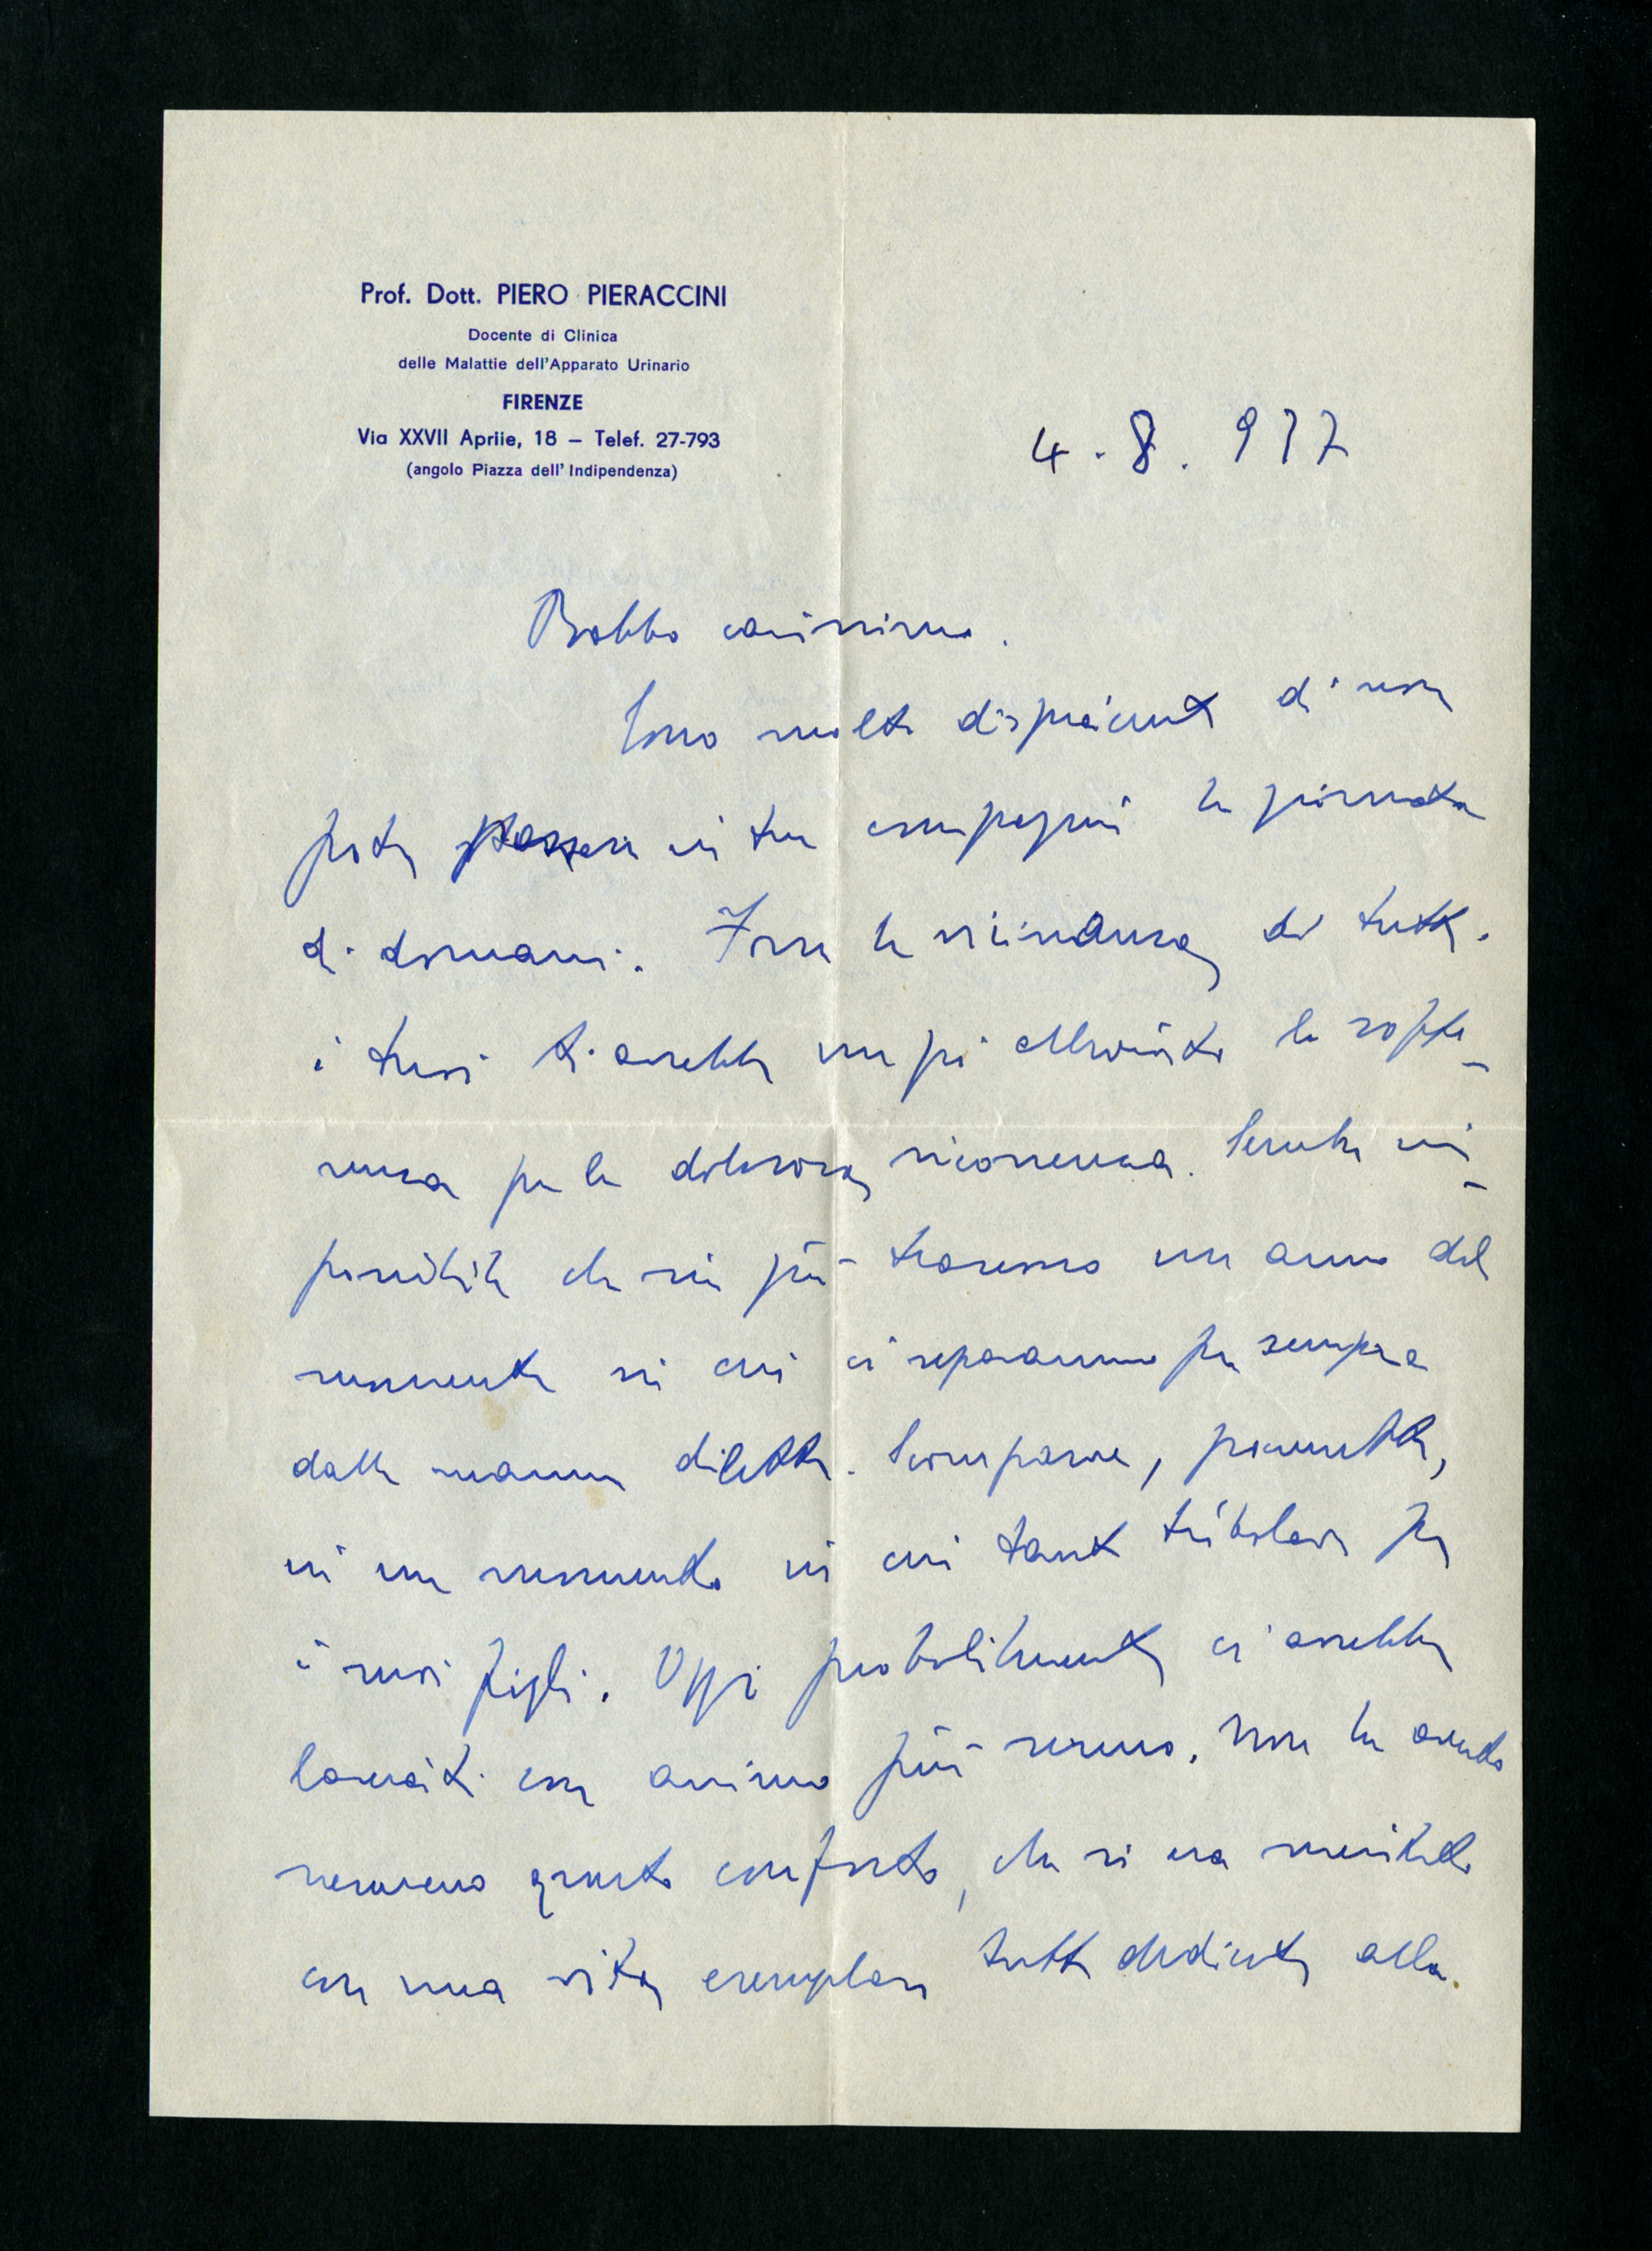 Prof. Dott. PIERO PIERACCINI
Docente di Clinica
delle Malattie dell'Apparato Urinario
FIRENZE
Via XXVII Aprile, 18 – Telef. 27-793
(angolo Piazza dell'Indipendenza)
4.8.937
Babbo carissimo.
Sono molto dispiacente di non
poter passare in tua compagnia la giornata
di domani. Forse la vicinanza di tutti
i tuoi ti avrebbe un po' alleviato la soffe-
renza per la dolorosa ricorrenza. Sembra im-
possibile che sia già trascorso un anno dal
momento in cui ci separammo per sempre
dalla mamma diletta. Scomparve, poveretta,
in un momento in cui tanto tribolava per
i suoi figli. Oggi probabilmente ci avrebbe
lasciati con animo più sereno. Non ha avuto
nemmeno questo conforto, che si era meritato
con una vita esemplare tutta dedicata alla